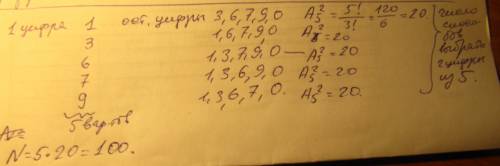 1 цифра 1 ост. цифры 3, 6, 7, 9, 0 A₅² = 5!/3! = 120/6 = 20
3 1, 6, 7, 9, 0 A₅² = 20
6 1, 3, 7, 9, 0 — A₅² = 20
7 1, 3, 6, 9, 0 A₅² = 20
9 1, 3, 6, 7, 0. A₅² = 20.
число
способов
выбрать
2 цифры
из 5.
5 вар-тов
N = 5·20 = 100.